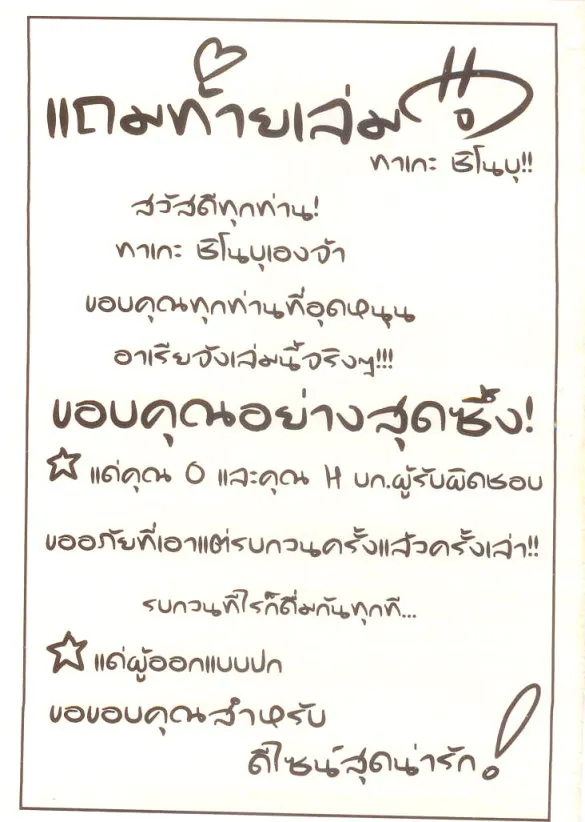 แถมท้ายเล่ม
ทาเกะ ชิโนบุ!!
สวัสดีทุกท่าน!
ทาเกะ ชิโนบุเองจ้า
ขอบคุณทุกท่านที่อุดหนุน
อาเรียจังเล่มนี้จริงๆ!!!
ขอบคุณอย่างสุดซึ้ง!
☆ แด่คุณ O และคุณ H บก.ผู้รับผิดชอบ
ขออภัยที่เอาแต่รบกวนครั้งแล้วครั้งเล่า!!
รบกวนทีไรก็ดื่มกันทุกที...
☆ แด่ผู้ออกแบบปก
ขอขอบคุณสำหรับ
ดีไซน์สุดน่ารัก!